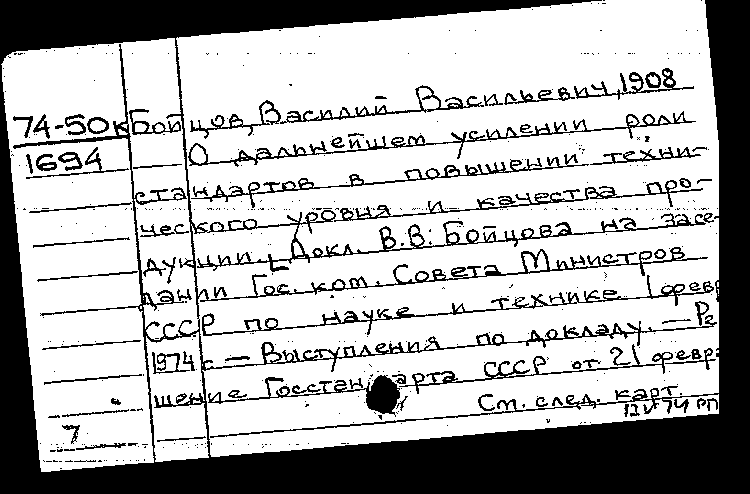 74-50к
1694
Бойцов, Василий Васильевич, 1908
О дальнейшем усилении роли
стандартов в повышении техни-
ческого уровня и качества про-
дукции. Докл. В.В. Бойцова на засе-
дании Гос. ком. Совета Министров
СССР по науке и технике 1 февр
1974 г. — Выступления по докладу. — Ре
шение Госстандарта СССР от 21 февр
См. след. карт.
7